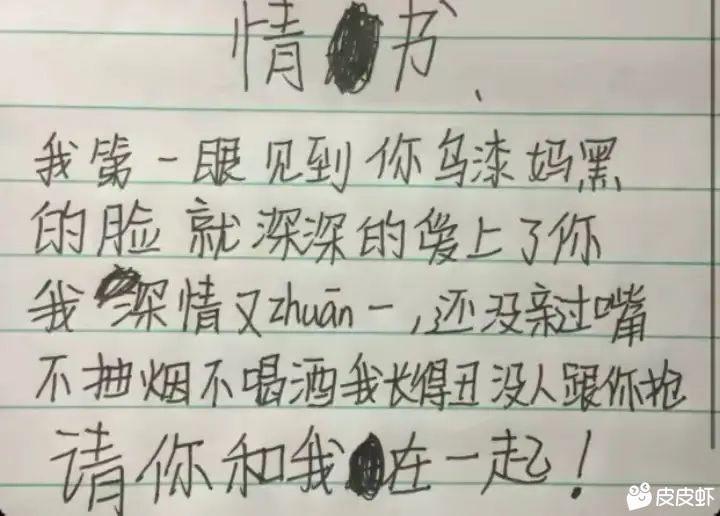 情书、
我第一眼见到你乌漆妈黑
的脸就深深的爱上了你
我深情又zhuān一,还没亲过嘴
不抽烟不喝酒我长得丑没人跟你抢
请你和我在一起!
皮皮虾